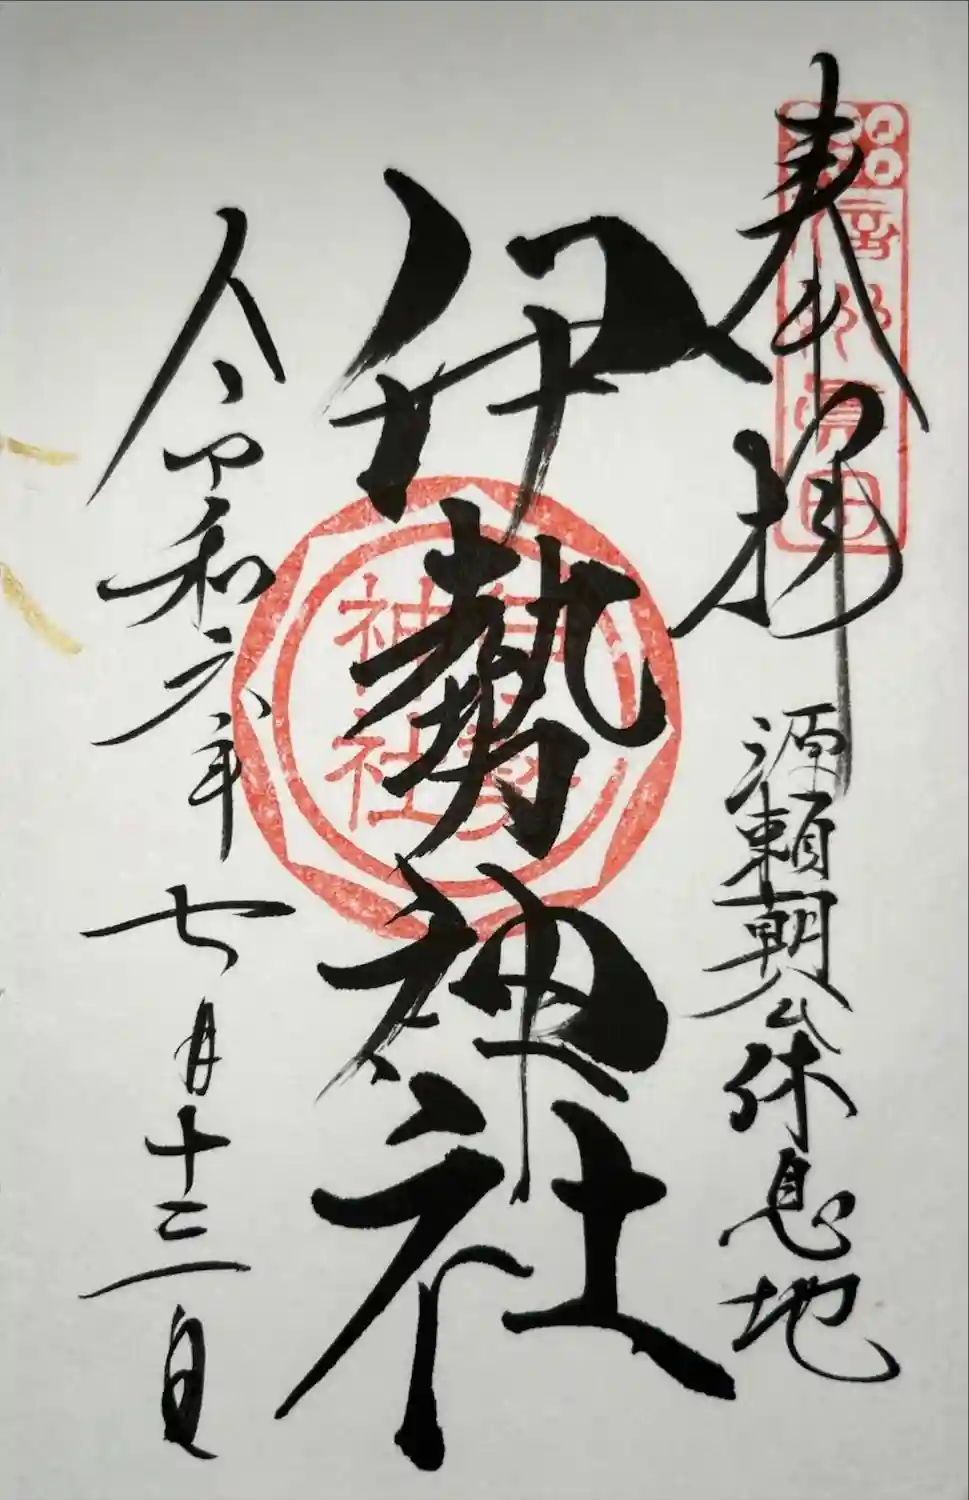 奉拝
源頼朝公休息地
伊勢神社
令和六年七月十三日
信州真田
神社